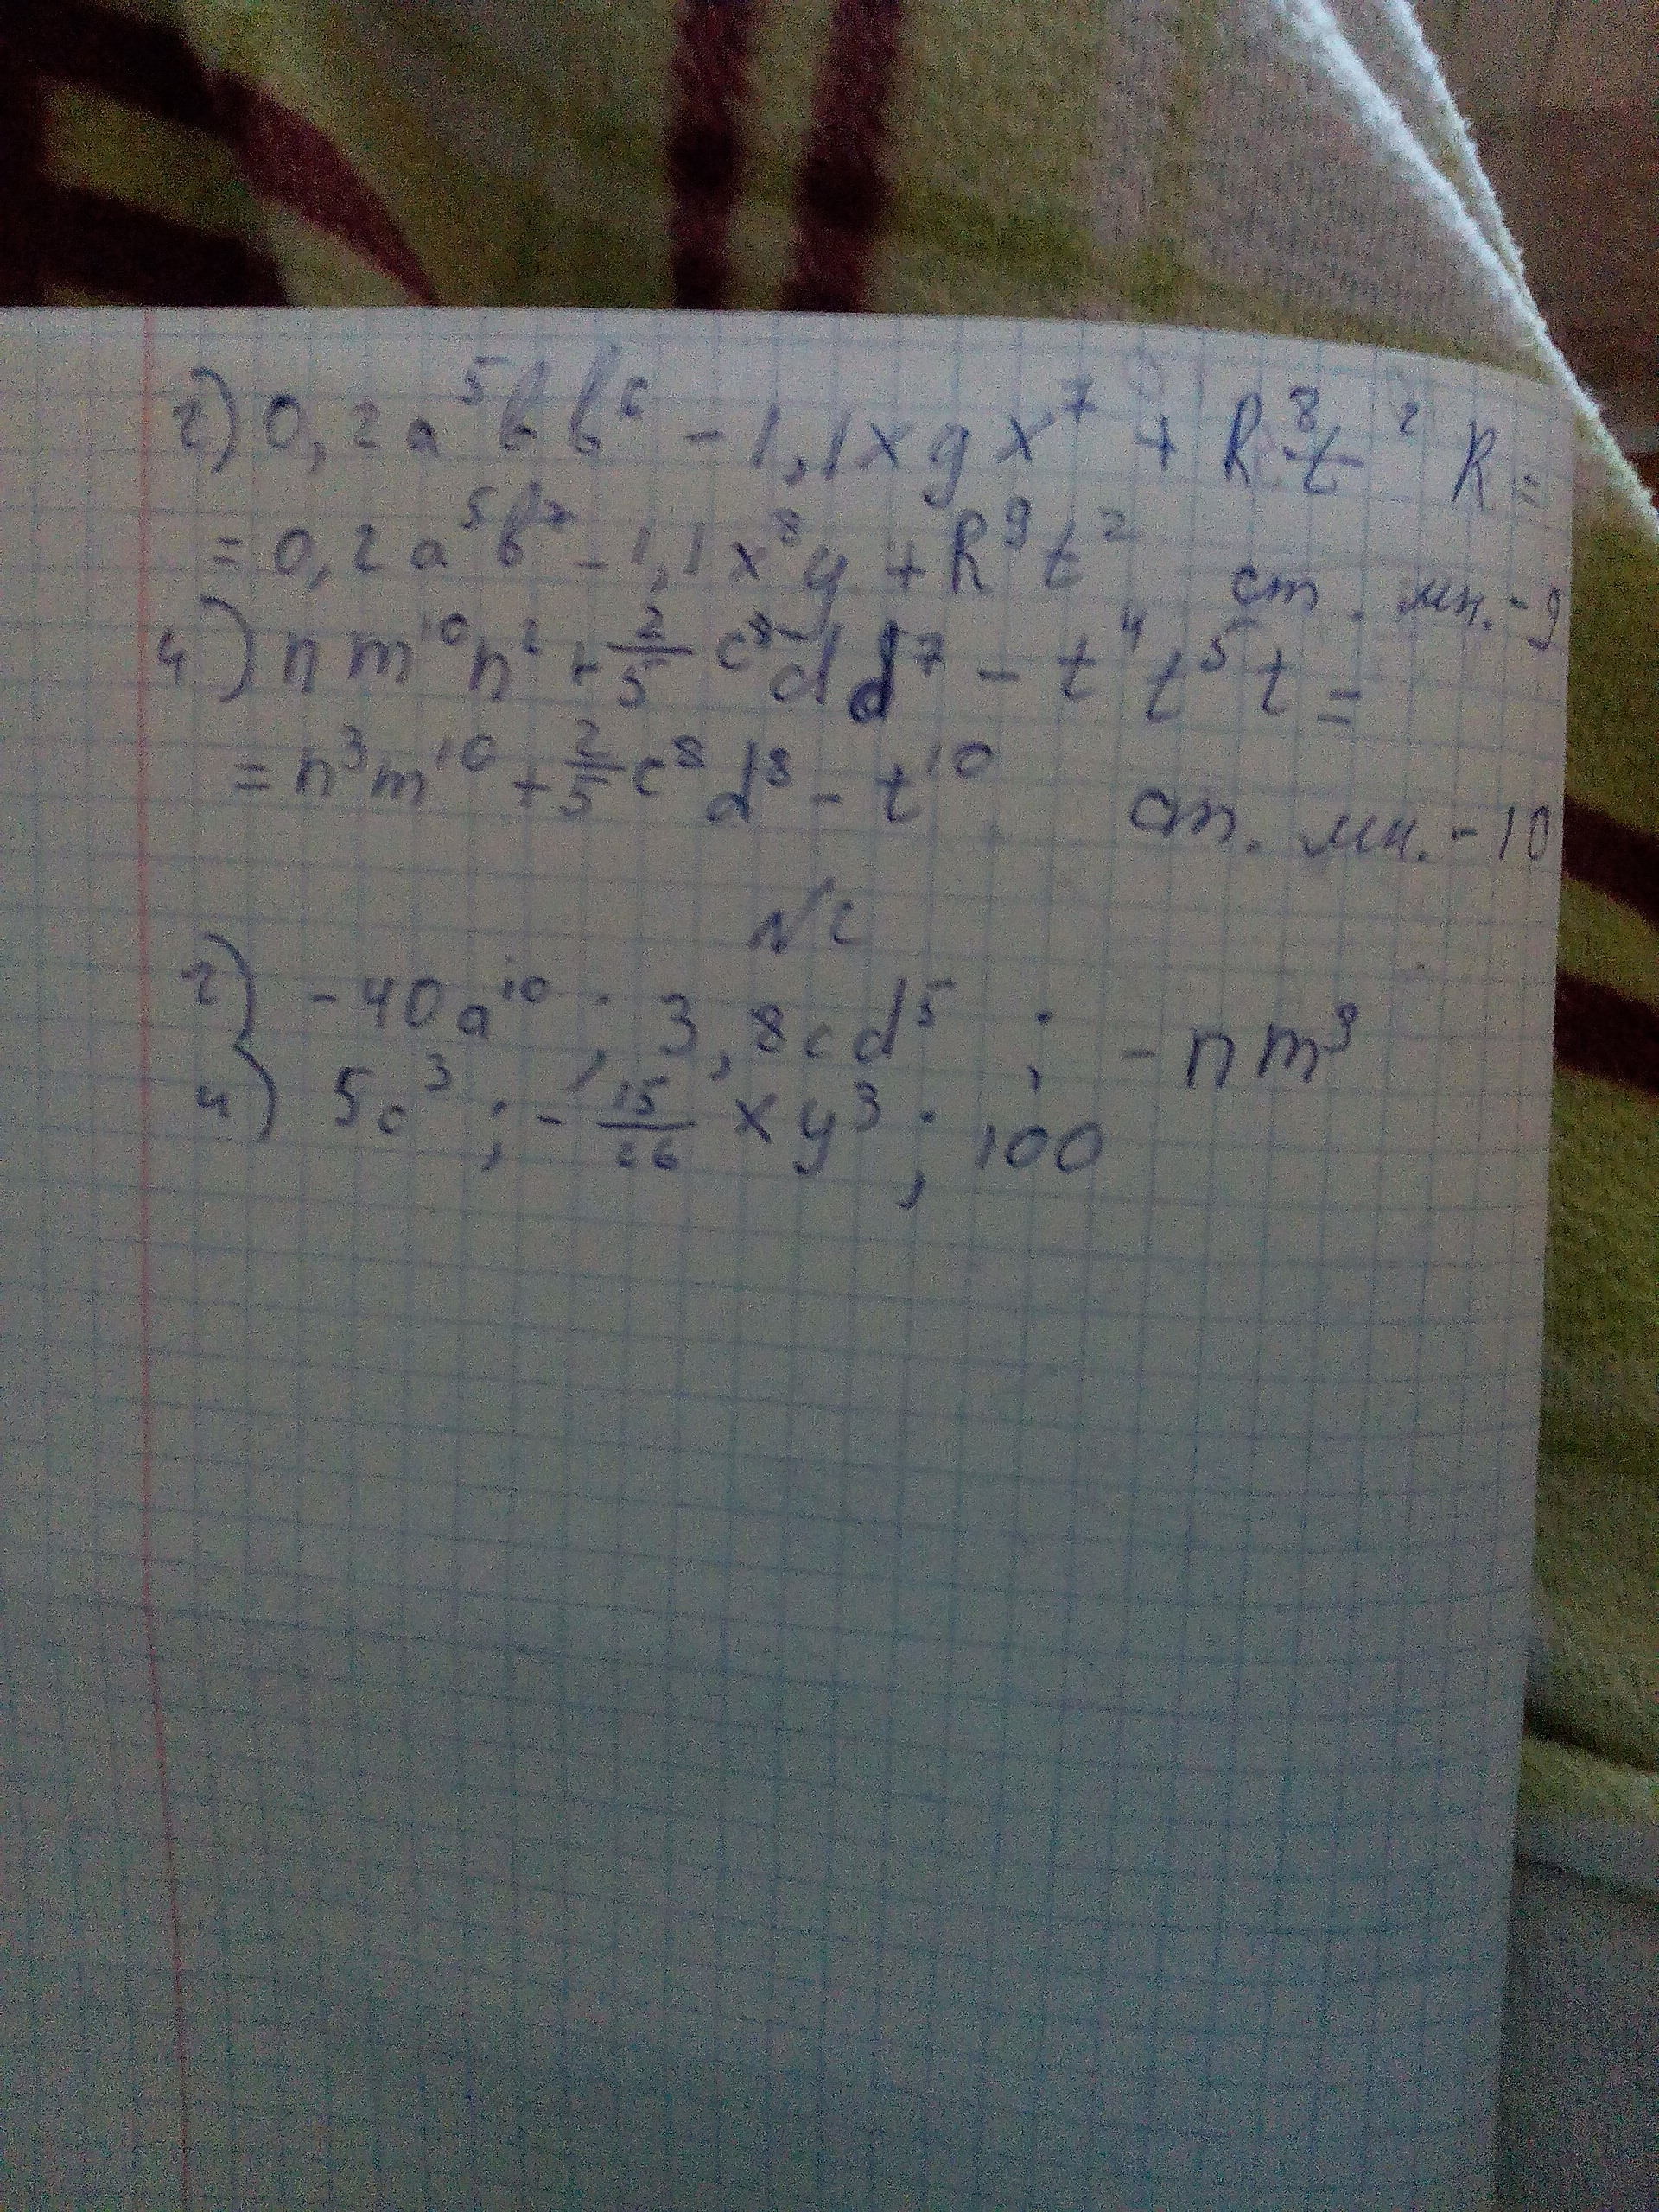 2) 0,2a⁵bb⁶ - 1,1xyx⁷ + R⁸t² R =
= 0,2a⁵b⁷ - 1,1x⁸y + R⁹t² ст. мн. - 9
4) nm¹⁰n² + 2/5 c⁸dd⁷ - t⁴t⁵t =
= n³m¹⁰ + 2/5 c⁸d⁸ - t¹⁰ ст. мн. - 10
№2
2) -40a¹⁰ ; 3,8cd⁵ ; -nm⁹
4) 5c³ ; - 15/26 xy³ ; 100